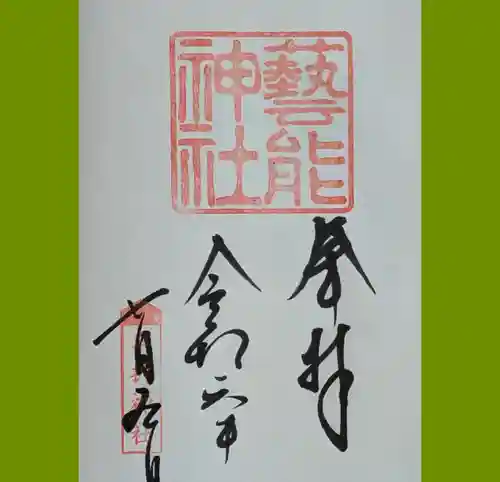 藝能
神社
奉拝
令和元年
七月五日